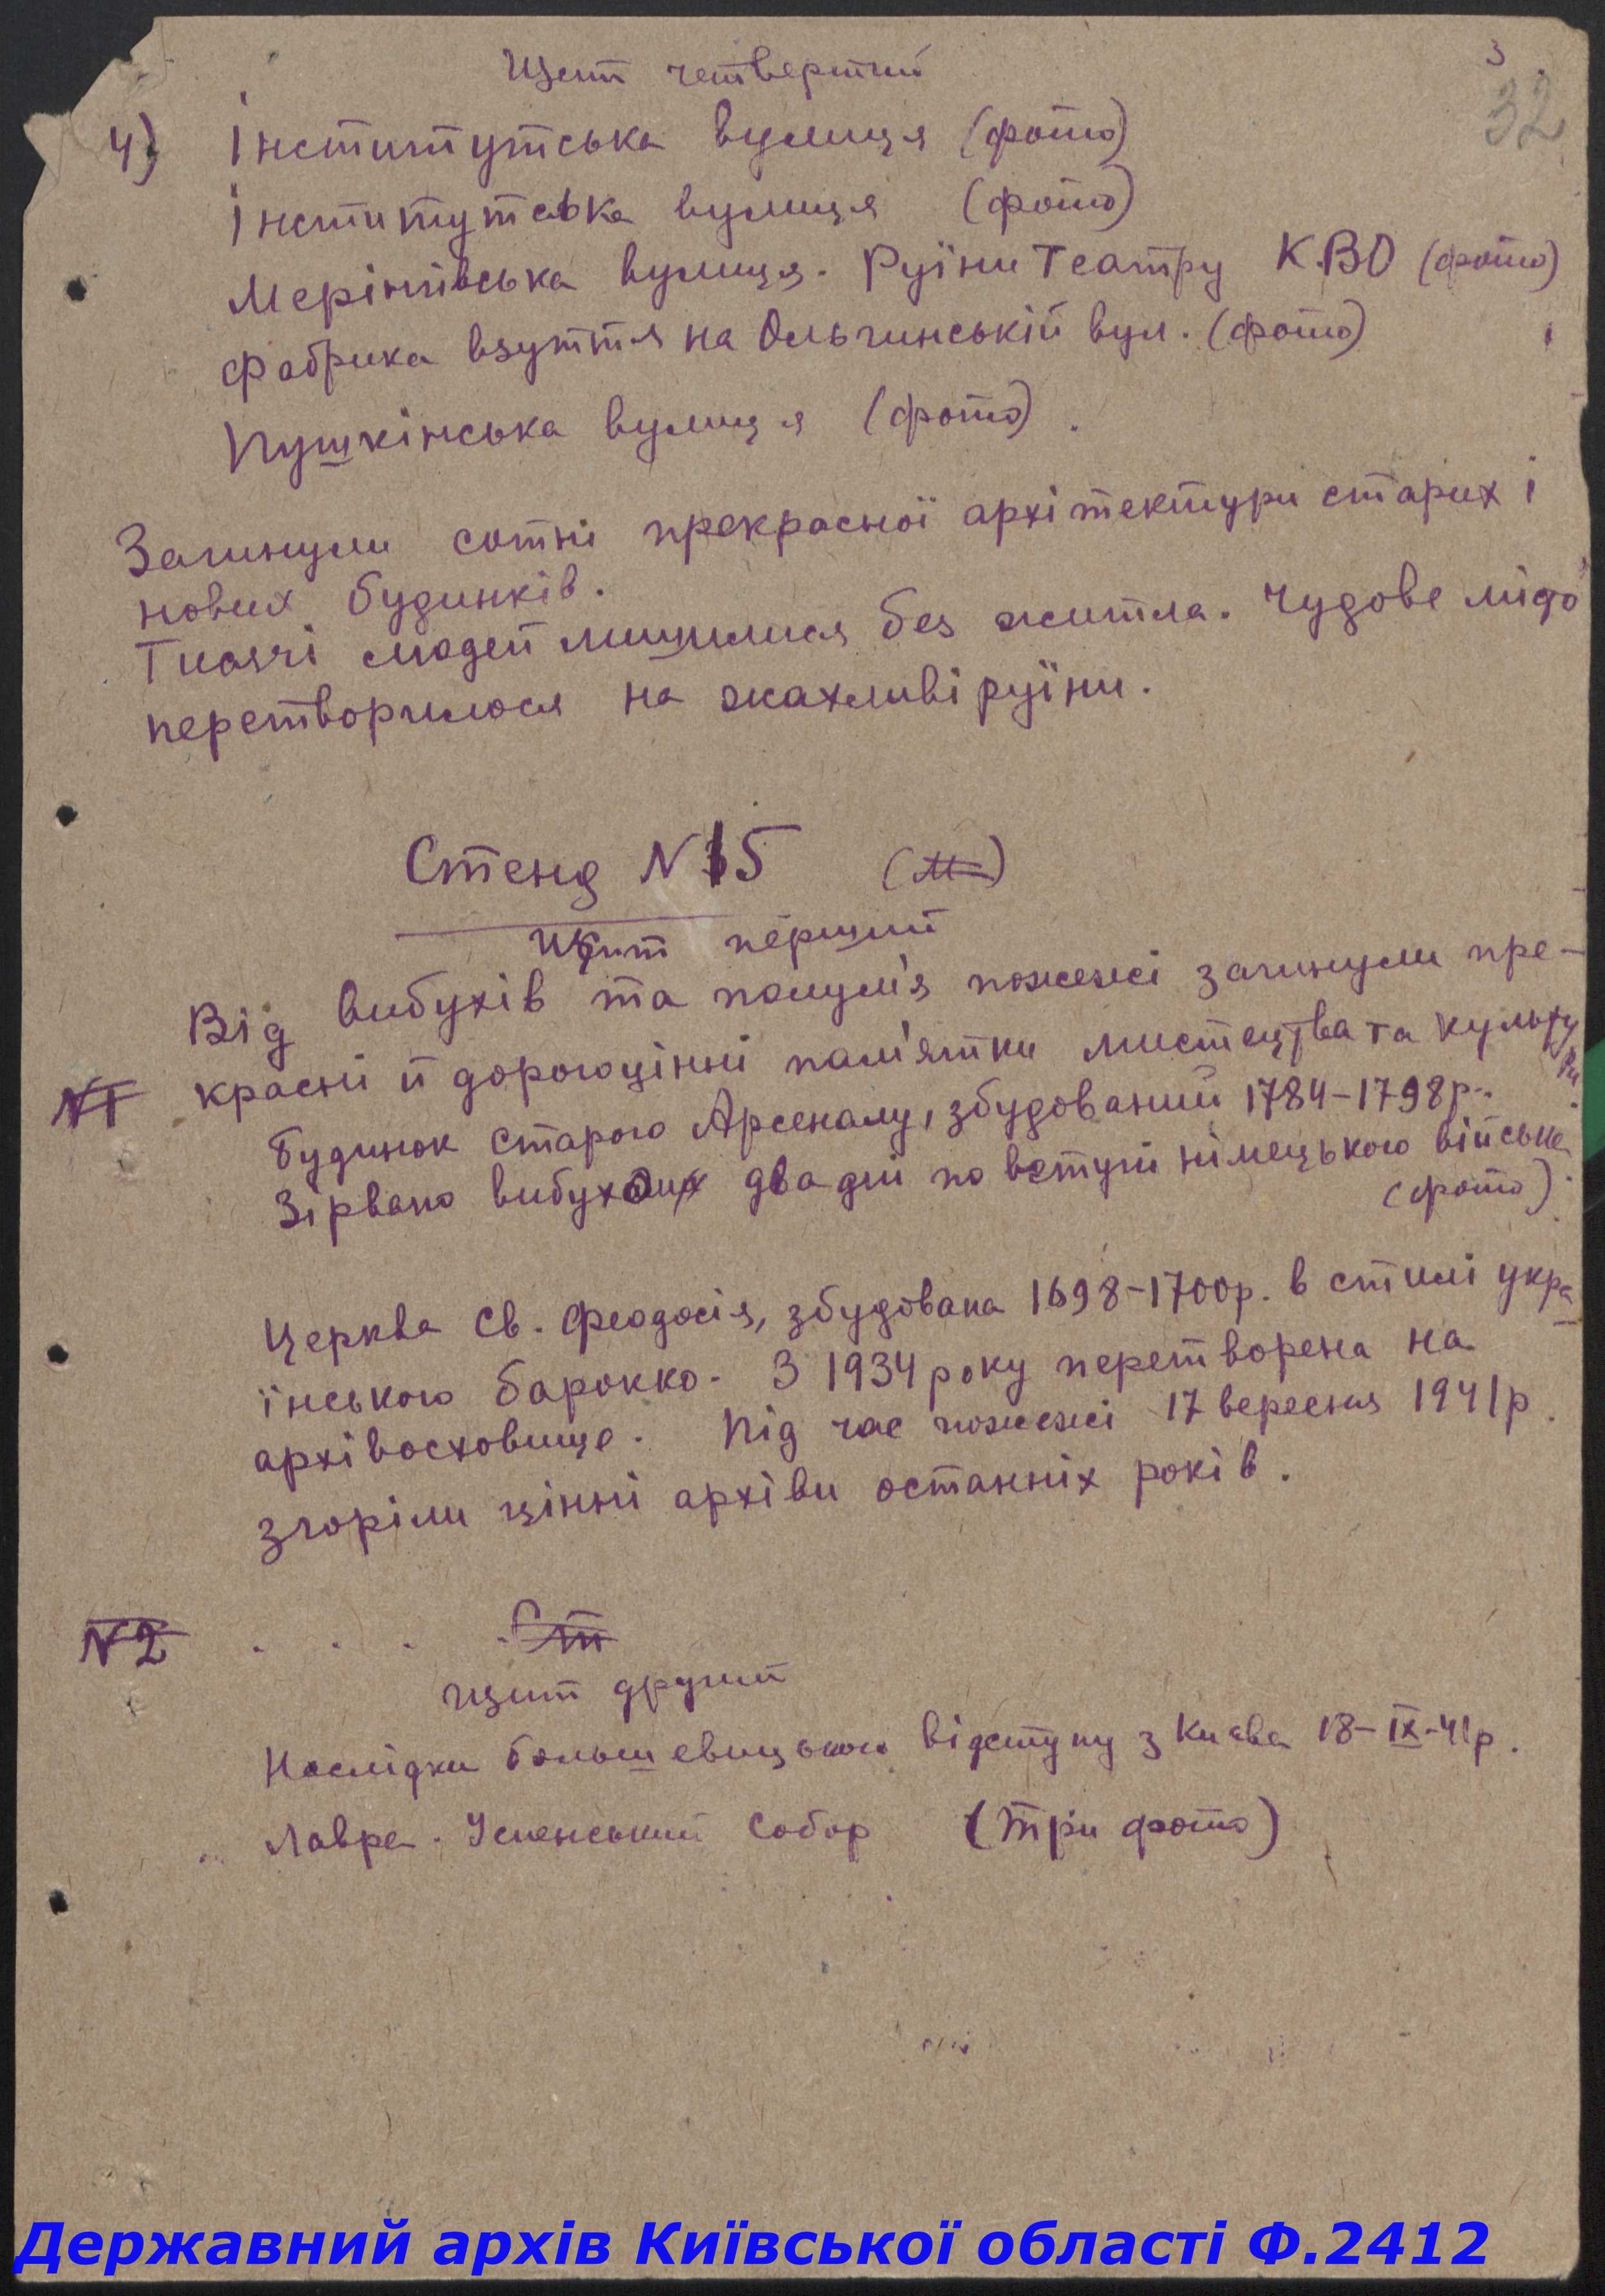 3
32
Щит четвертий
4) Інститутська вулиця (фото)
Інститутська вулиця (фото)
Мерінгівська вулиця. Руїни Театру К.ВО (фото)
Фабрика взуття на Ольгинській вул. (фото)
Пушкінська вулиця (фото).
Загинули сотні прекрасної архітектури старих і
нових будинків.
Тисячі людей лишилися без житла. Чудове місто
перетворилося на жахливі руїни.
Стенд N 15 (М)
Щит перший
Від вибухів та полум'я пожежі загинули пре-
N1 красні й дорогоцінні пам'ятки мистецтва та культури.
Будинок старого Арсеналу, збудований 1784-1798р.
Зірвано вибухом два дні по вступі німецького війська.
(фото)
Церква Св. Феодосія, збудована 1698-1700р. в стилі укра-
їнського барокко. З 1934 року перетворена на
архівосховище. Під час пожежі 17 вересня 1941р.
згоріли цінні архіви останніх років.
N2 . . . . Ст
Щит другий
Наслідки большевицького відступу з Києва 18-IX-41р.
Лавра. Успенський Собор (Три фото)
Державний архів Київської області Ф.2412